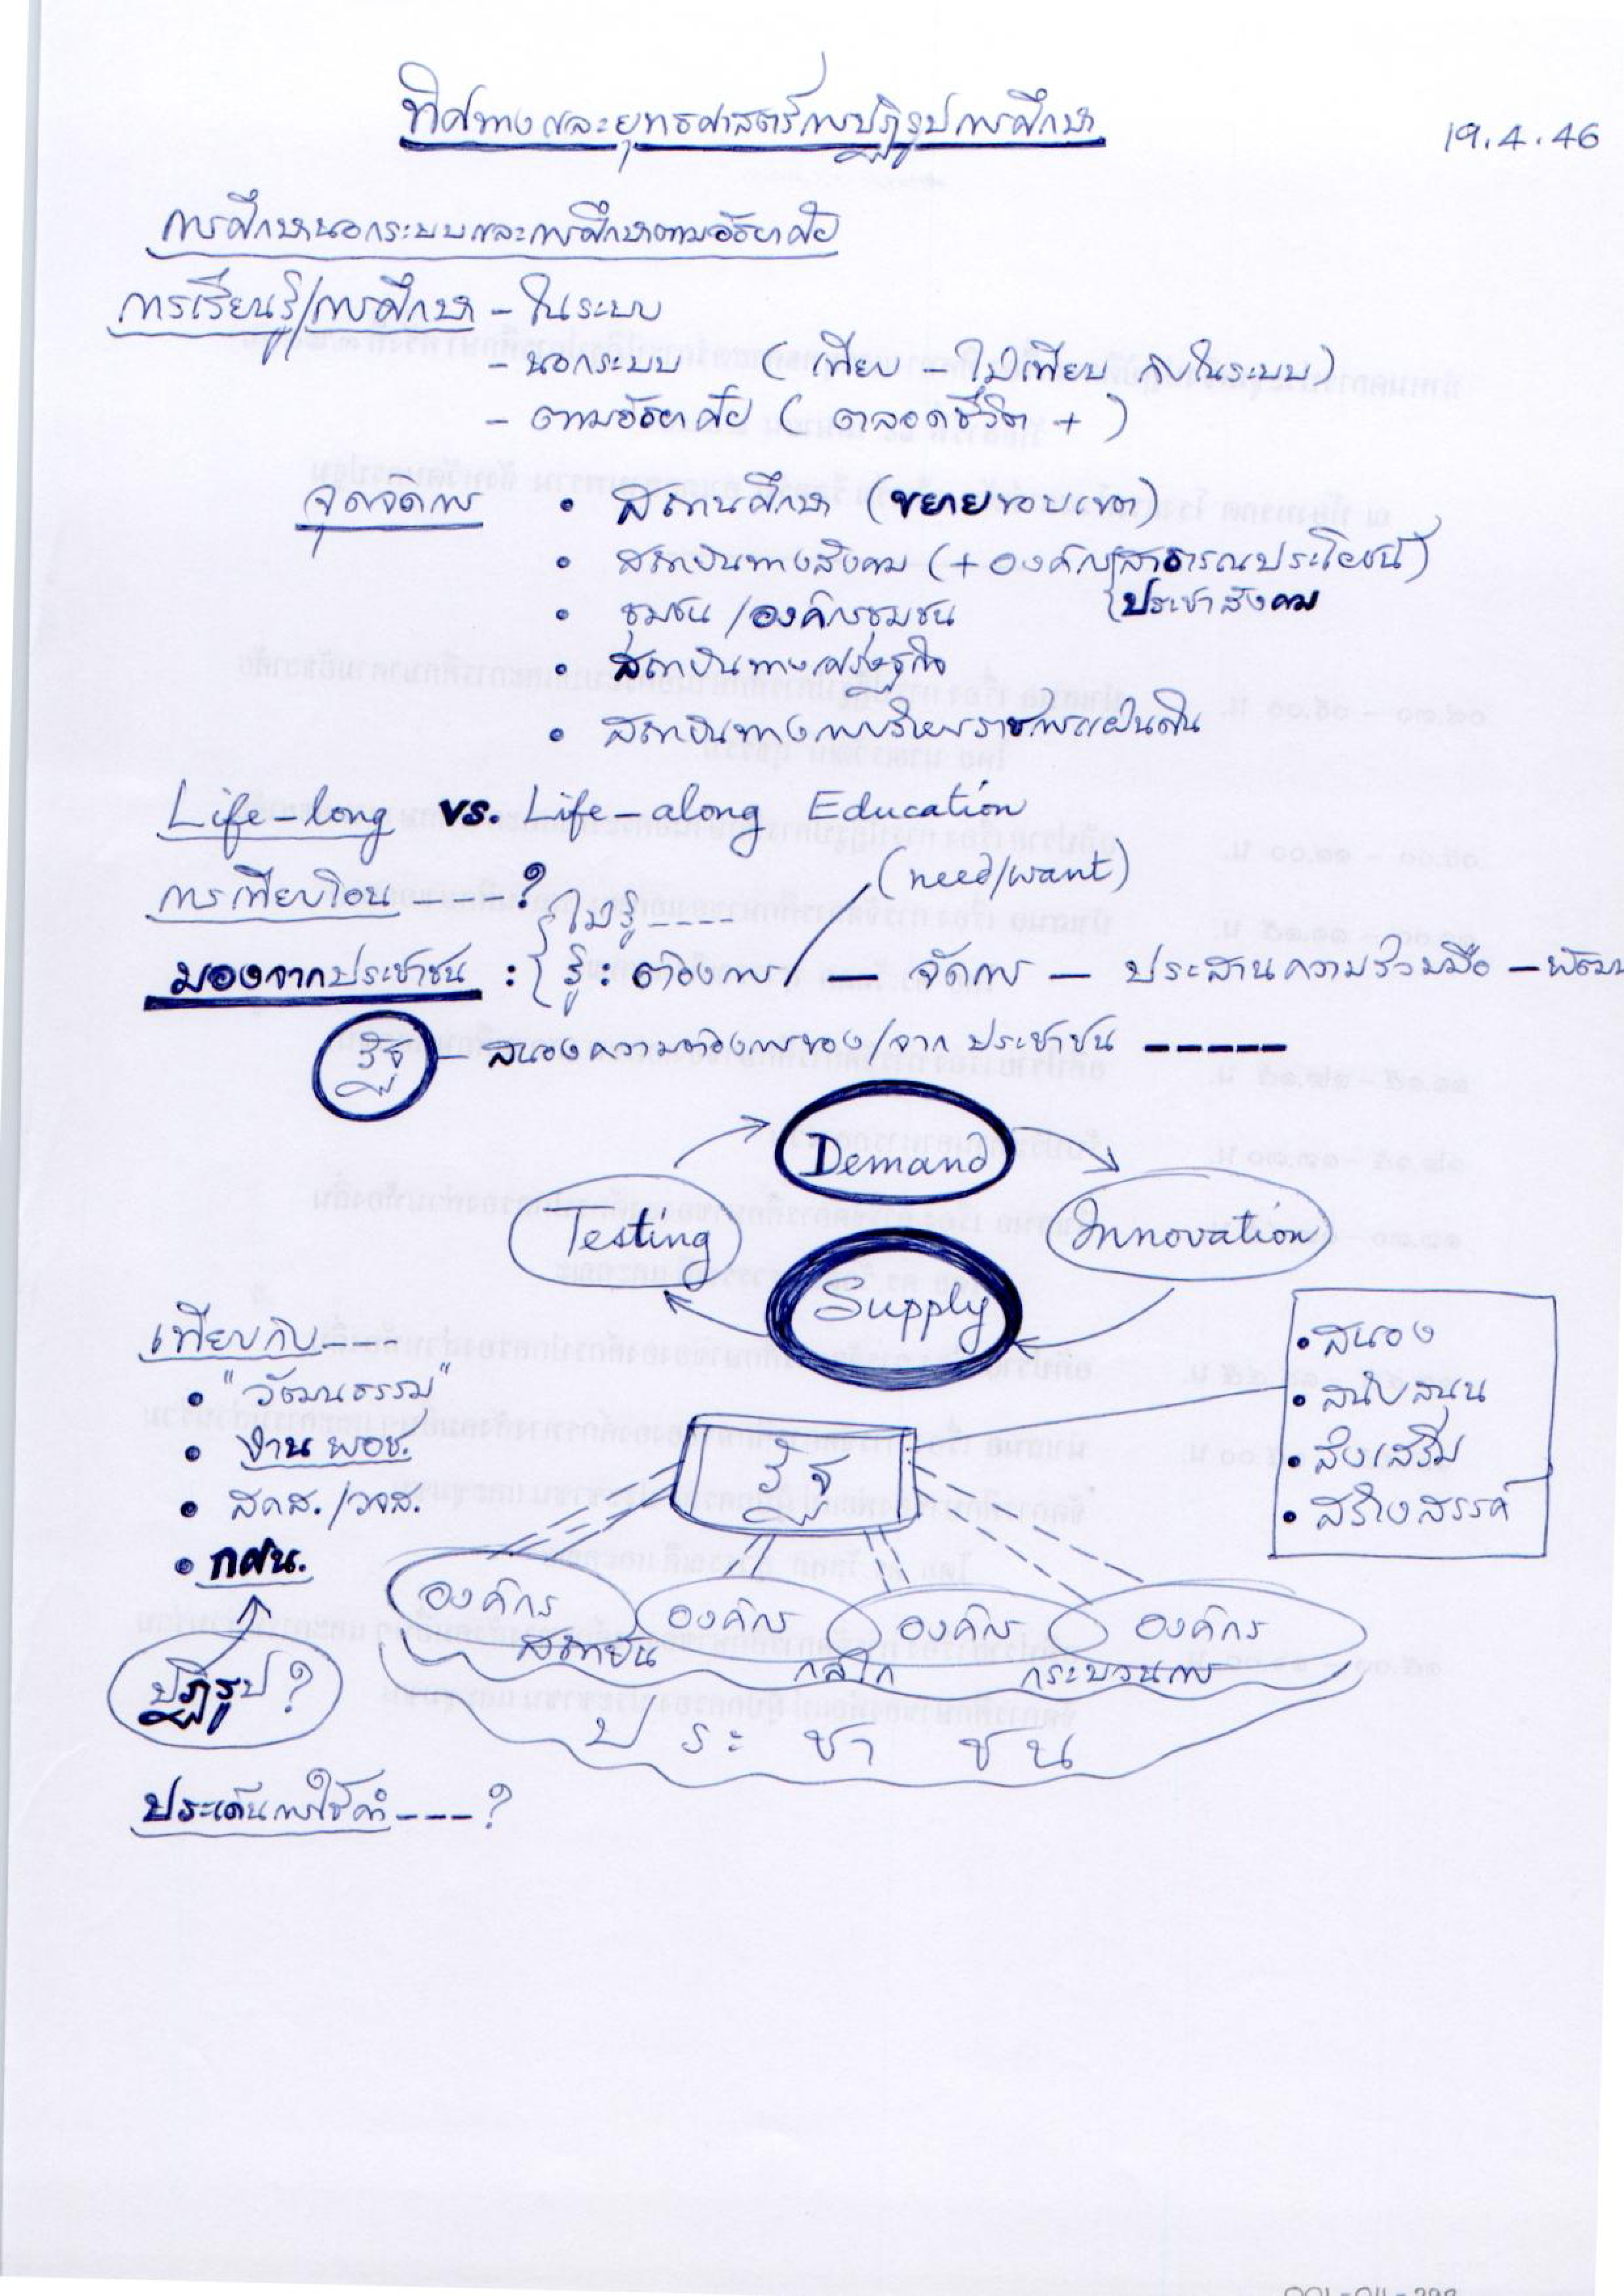 ทิศทางและยุทธศาสตร์การปฏิรูปการศึกษา
19.4.46
การศึกษานอกระบบและการศึกษาตามอัธยาศัย
การเรียนรู้/การศึกษา - ในระบบ
- นอกระบบ (เทียบ - ไม่เทียบ กับในระบบ)
- ตามอัธยาศัย (ตลอดชีวิต +)
จุดจัดการ • สถานศึกษา (ขยายขอบเขต)
• สถาบันทางสังคม (+ องค์กร{สาธารณประโยชน์)
{ประชาสังคม
• ชุมชน /องค์กรชุมชน
• สถาบันทางเศรษฐกิจ
• สถาบันทางการบริหารราชการแผ่นดิน
Life-long vs. Life-along Education
(need/want)
การเทียบโอน ----?
{ไม่รู้ ----
มองจากประชาชน : {รู้ : ต้องการ — จัดการ — ประสานความร่วมมือ — พัฒนา
รัฐ - สนองความต้องการของ/จาก ประชาชน -----
Demand
Testing
Innovation
Supply
เทียบกับ ----
• "วัฒนธรรม"
• งาน พอช.
• สคส./วจส.
• กศน.
ปฏิรูป?
• สนอง
• สนับสนุน
• ส่งเสริม
• สร้างสรรค์
รัฐ
องค์กร องค์กร องค์กร องค์กร
สถาบัน กลไก กระบวนการ
ประชาชน
ประเด็นการใช้คำ ---?